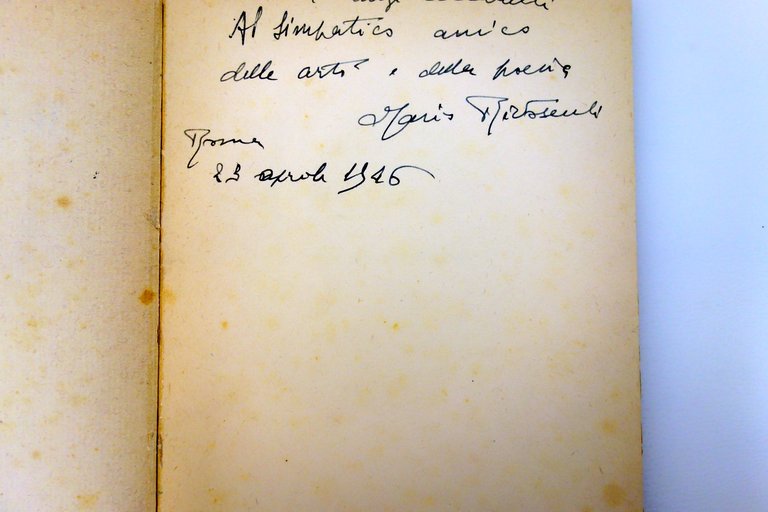 Al simpatico amico
delle arti e della poesia
Mario
Roma
23 aprile 1946